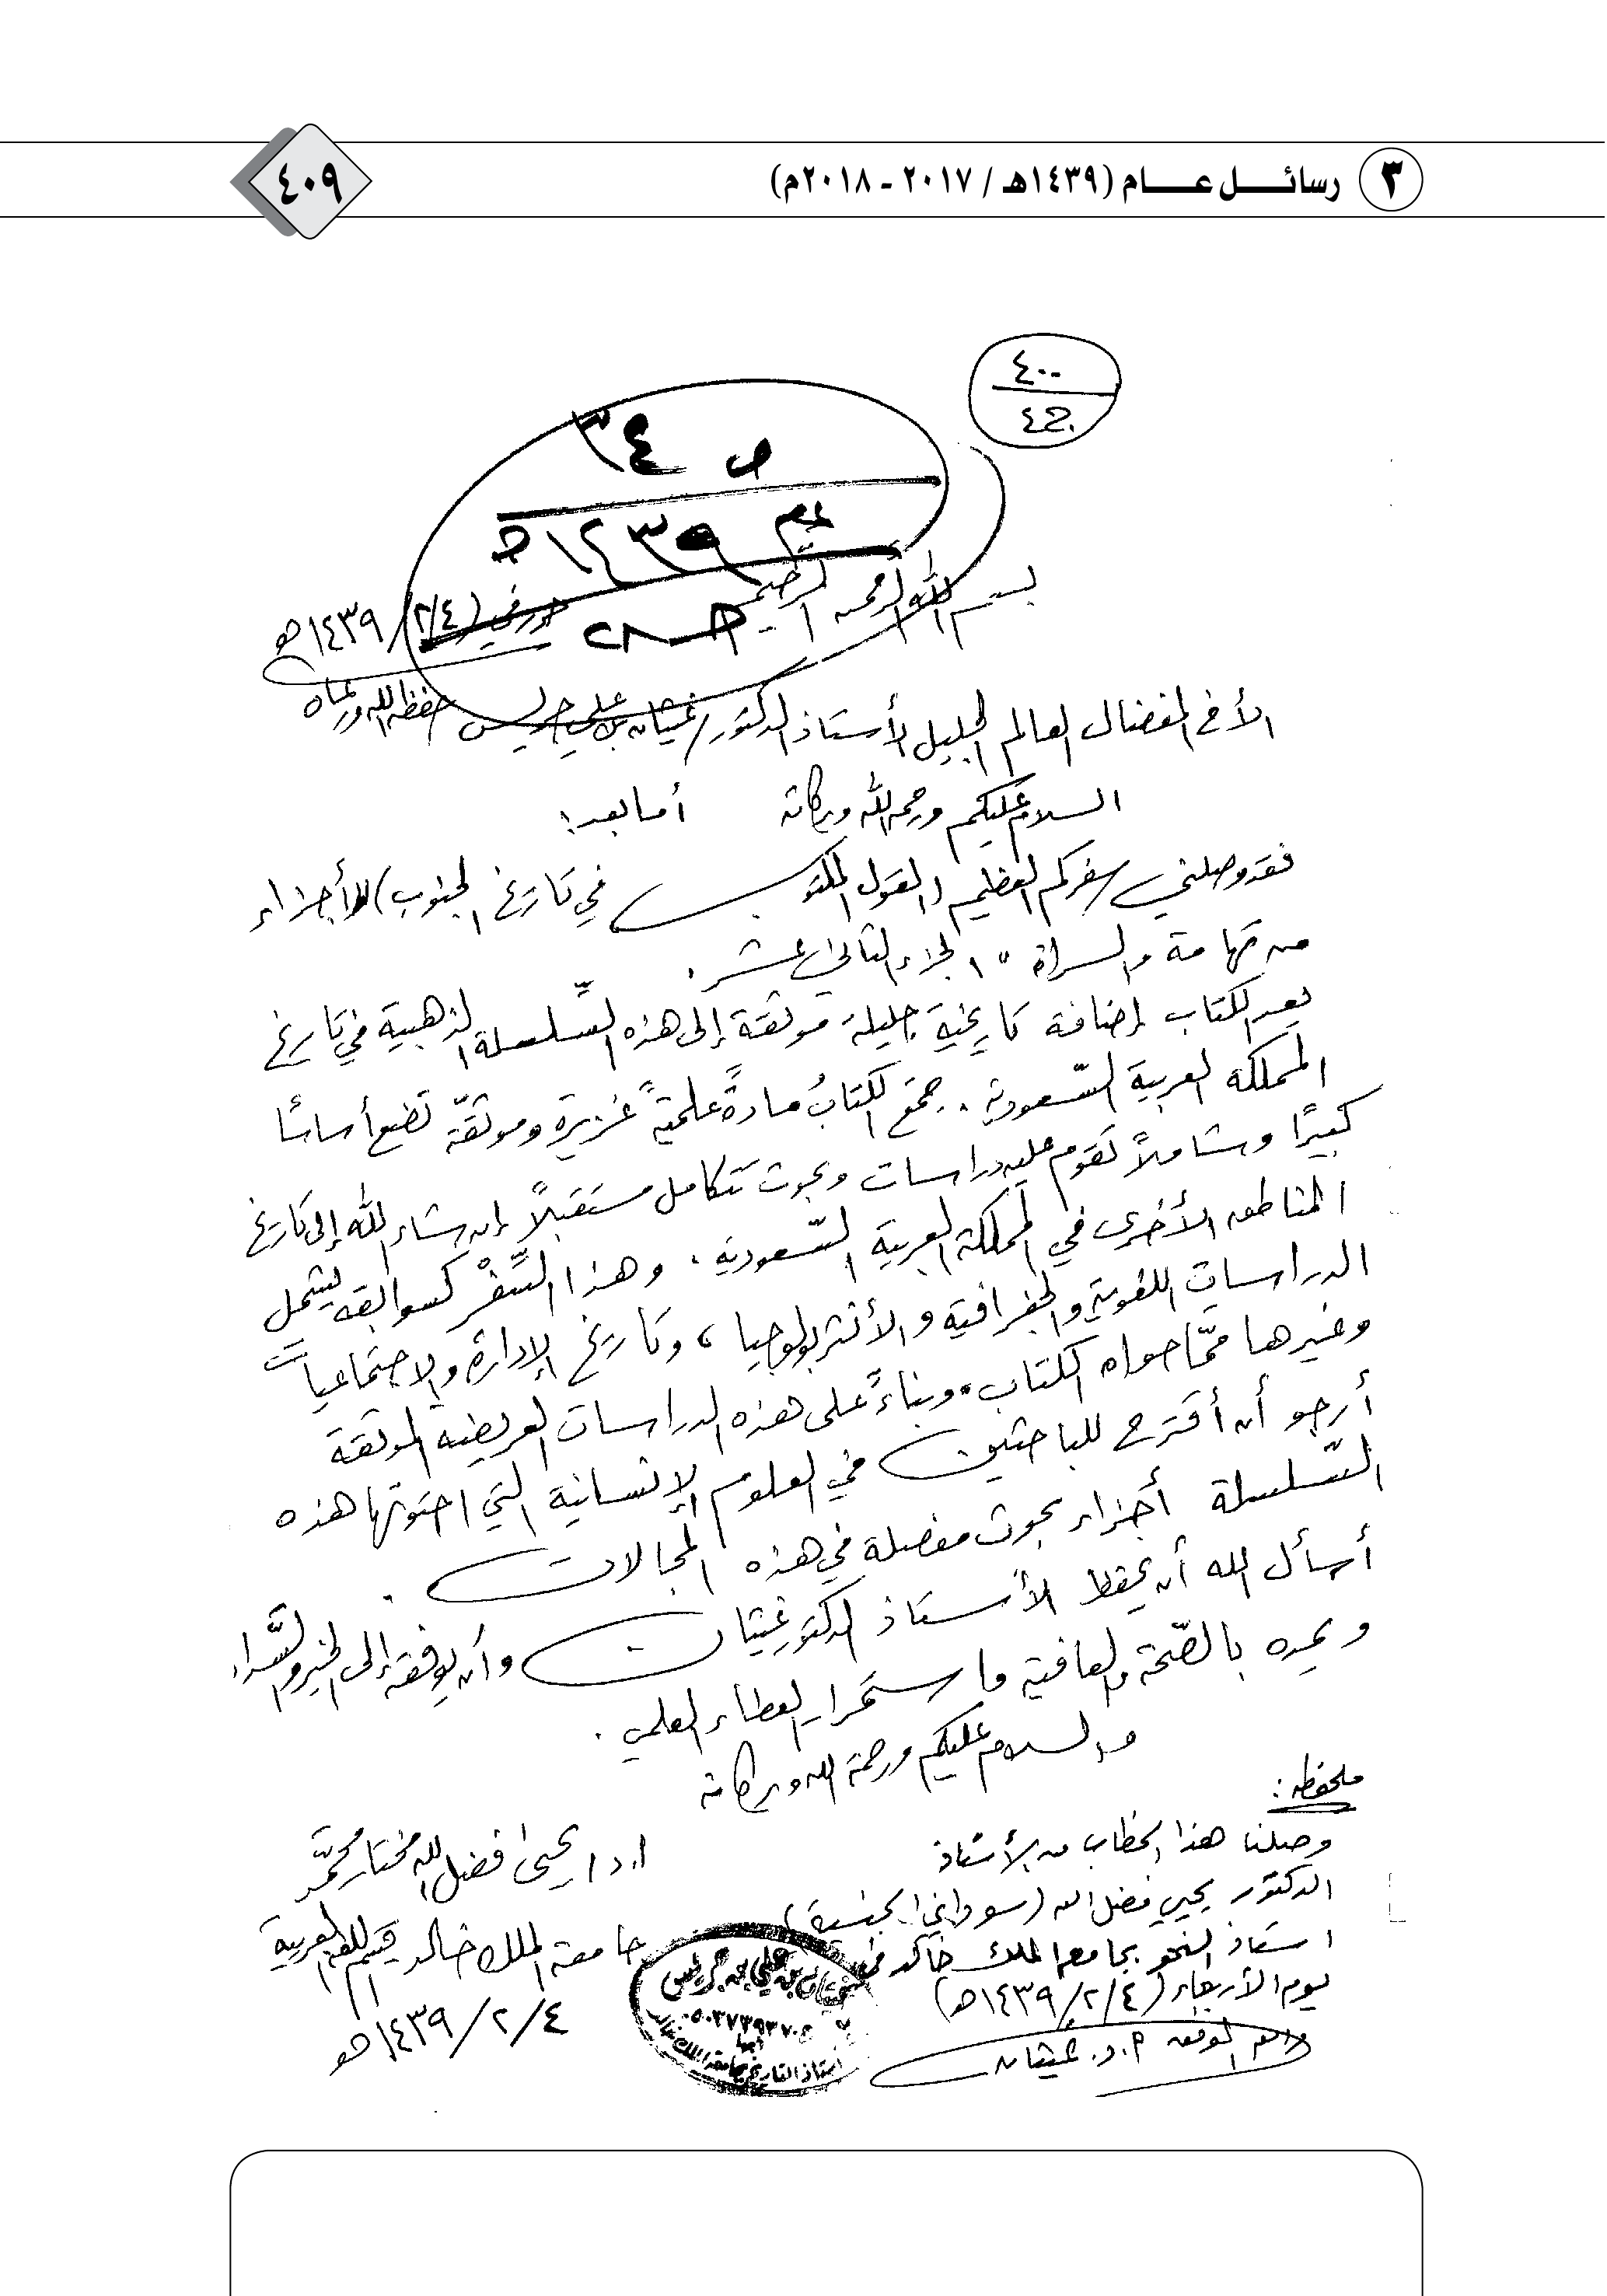 ٣ رسائل عام (١٤٣٩هـ / ٢٠١٧ - ٢٠١٨م)
٤٠٩
٤٠٠
ص ٣٤
١٤٣٩هـ
بسم الله الرحمن الرحيم
(٢/٤) / ١٤٣٩هـ
الأخ المفضال العالم الجليل الأستاذ الدكتور / غيثان بن علي جريس حفظه الله ورعاه
السلام عليكم ورحمة الله وبركاته أما بعد:
فقد وصلني سفركم العظيم (القول المكتوب في تاريخ الجنوب) لأجزاء
من تهامة والسراة " الجزء الثاني عشر.
يعد الكتاب إضافة تاريخية جليلة موثقة إلى هذه السِّلسلة الذهبية في تاريخ
المملكة العربية السّعودية. جمَع الكتابُ مادةً علميّةً غزيرة وموثقّة تضع أساسًا
كبيرًا وشاملاً تقوم عليه دراسات وبحوث تتكامل مستقبلاً إن شاء الله إلى تاريخ
المناطق الأخرى في المملكة العربية السّعودية. وهذا السِّفْر كسوابقه يشمل
الدراسات اللغوية والجغرافية والأنثربولوجيا، وتاريخ الإدارة والاجتماعيات
وغيرها ممّا حواه الكتاب. وبناءً على هذه الدراسات العريضة الموثقة
أرجو أن أقترح للباحثين في العلوم الإنسانية التي احتوتها هذه
السّلسلة أجزاء بحوث مفصلة في هذه المجالات.
أسأل الله أن يحفظ الأستاذ الدكتور غيثان وأن يوفقه إلى الخير والسَّداد
ويمده بالصّحة والعافية واستمرار العطاء العلمي.
والسلام عليكم ورحمة الله وبركاته
أ.د / يحيى فضل الله مختار محمّد
جامعة الملك خالد قسم اللغة العربية
٤ / ٢ / ١٤٣٩هـ
ملحوظة:
وصلنا هذا الخطاب من الأستاذ
الدكتور يحيى فضل الله (سوداني الجنسية)
استاذ النحو بجامعة الملك خالد في
يوم الأربعاء (٤/٢/١٤٣٩هـ)
والله الموفق أ.د. غيثان
غيثان بن علي بن جريس
أبها
استاذ التاريخ بجامعة الملك خالد